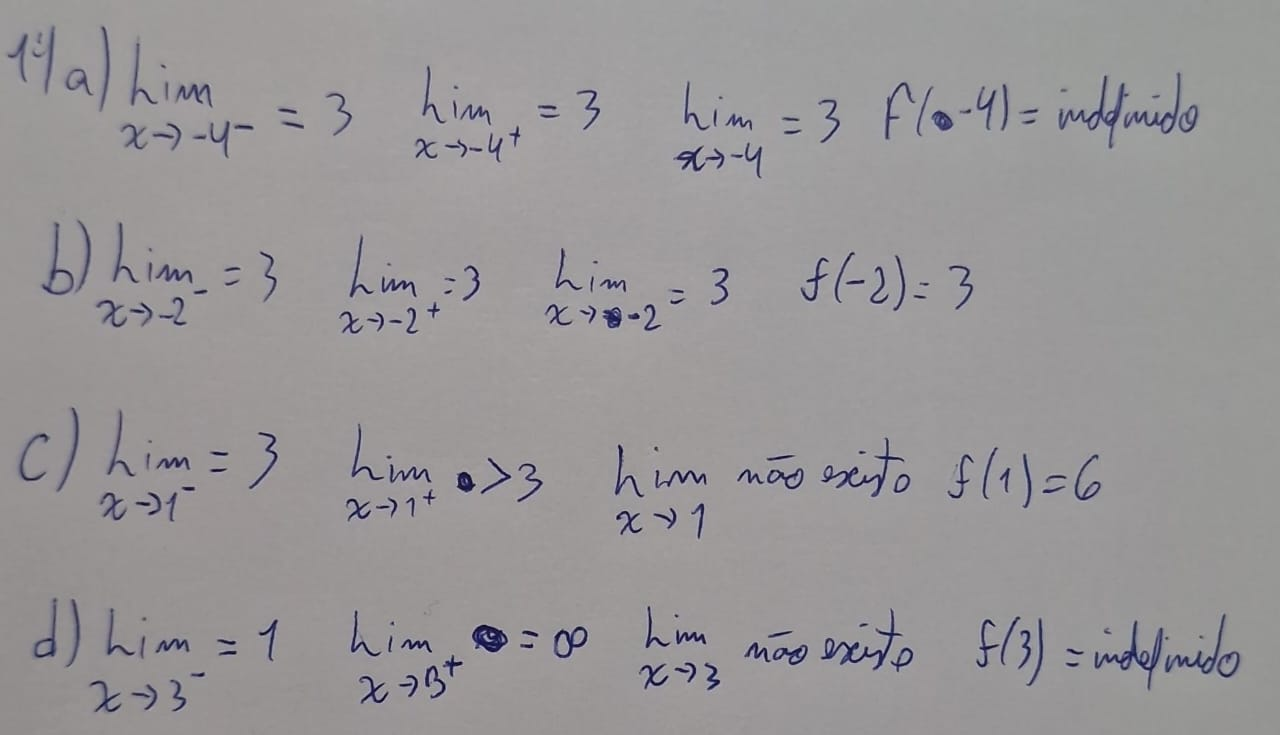 14) a) lim x→-4⁻ = 3 lim x→-4⁺ = 3 lim x→-4 = 3 f(-4) = indefinido
b) lim x→-2⁻ = 3 lim x→-2⁺ = 3 lim x→-2 = 3 f(-2) = 3
c) lim x→1⁻ = 3 lim x→1⁺ > 3 lim x→1 não existe f(1) = 6
d) lim x→3⁻ = 1 lim x→3⁺ = ∞ lim x→3 não existe f(3) = indefinido